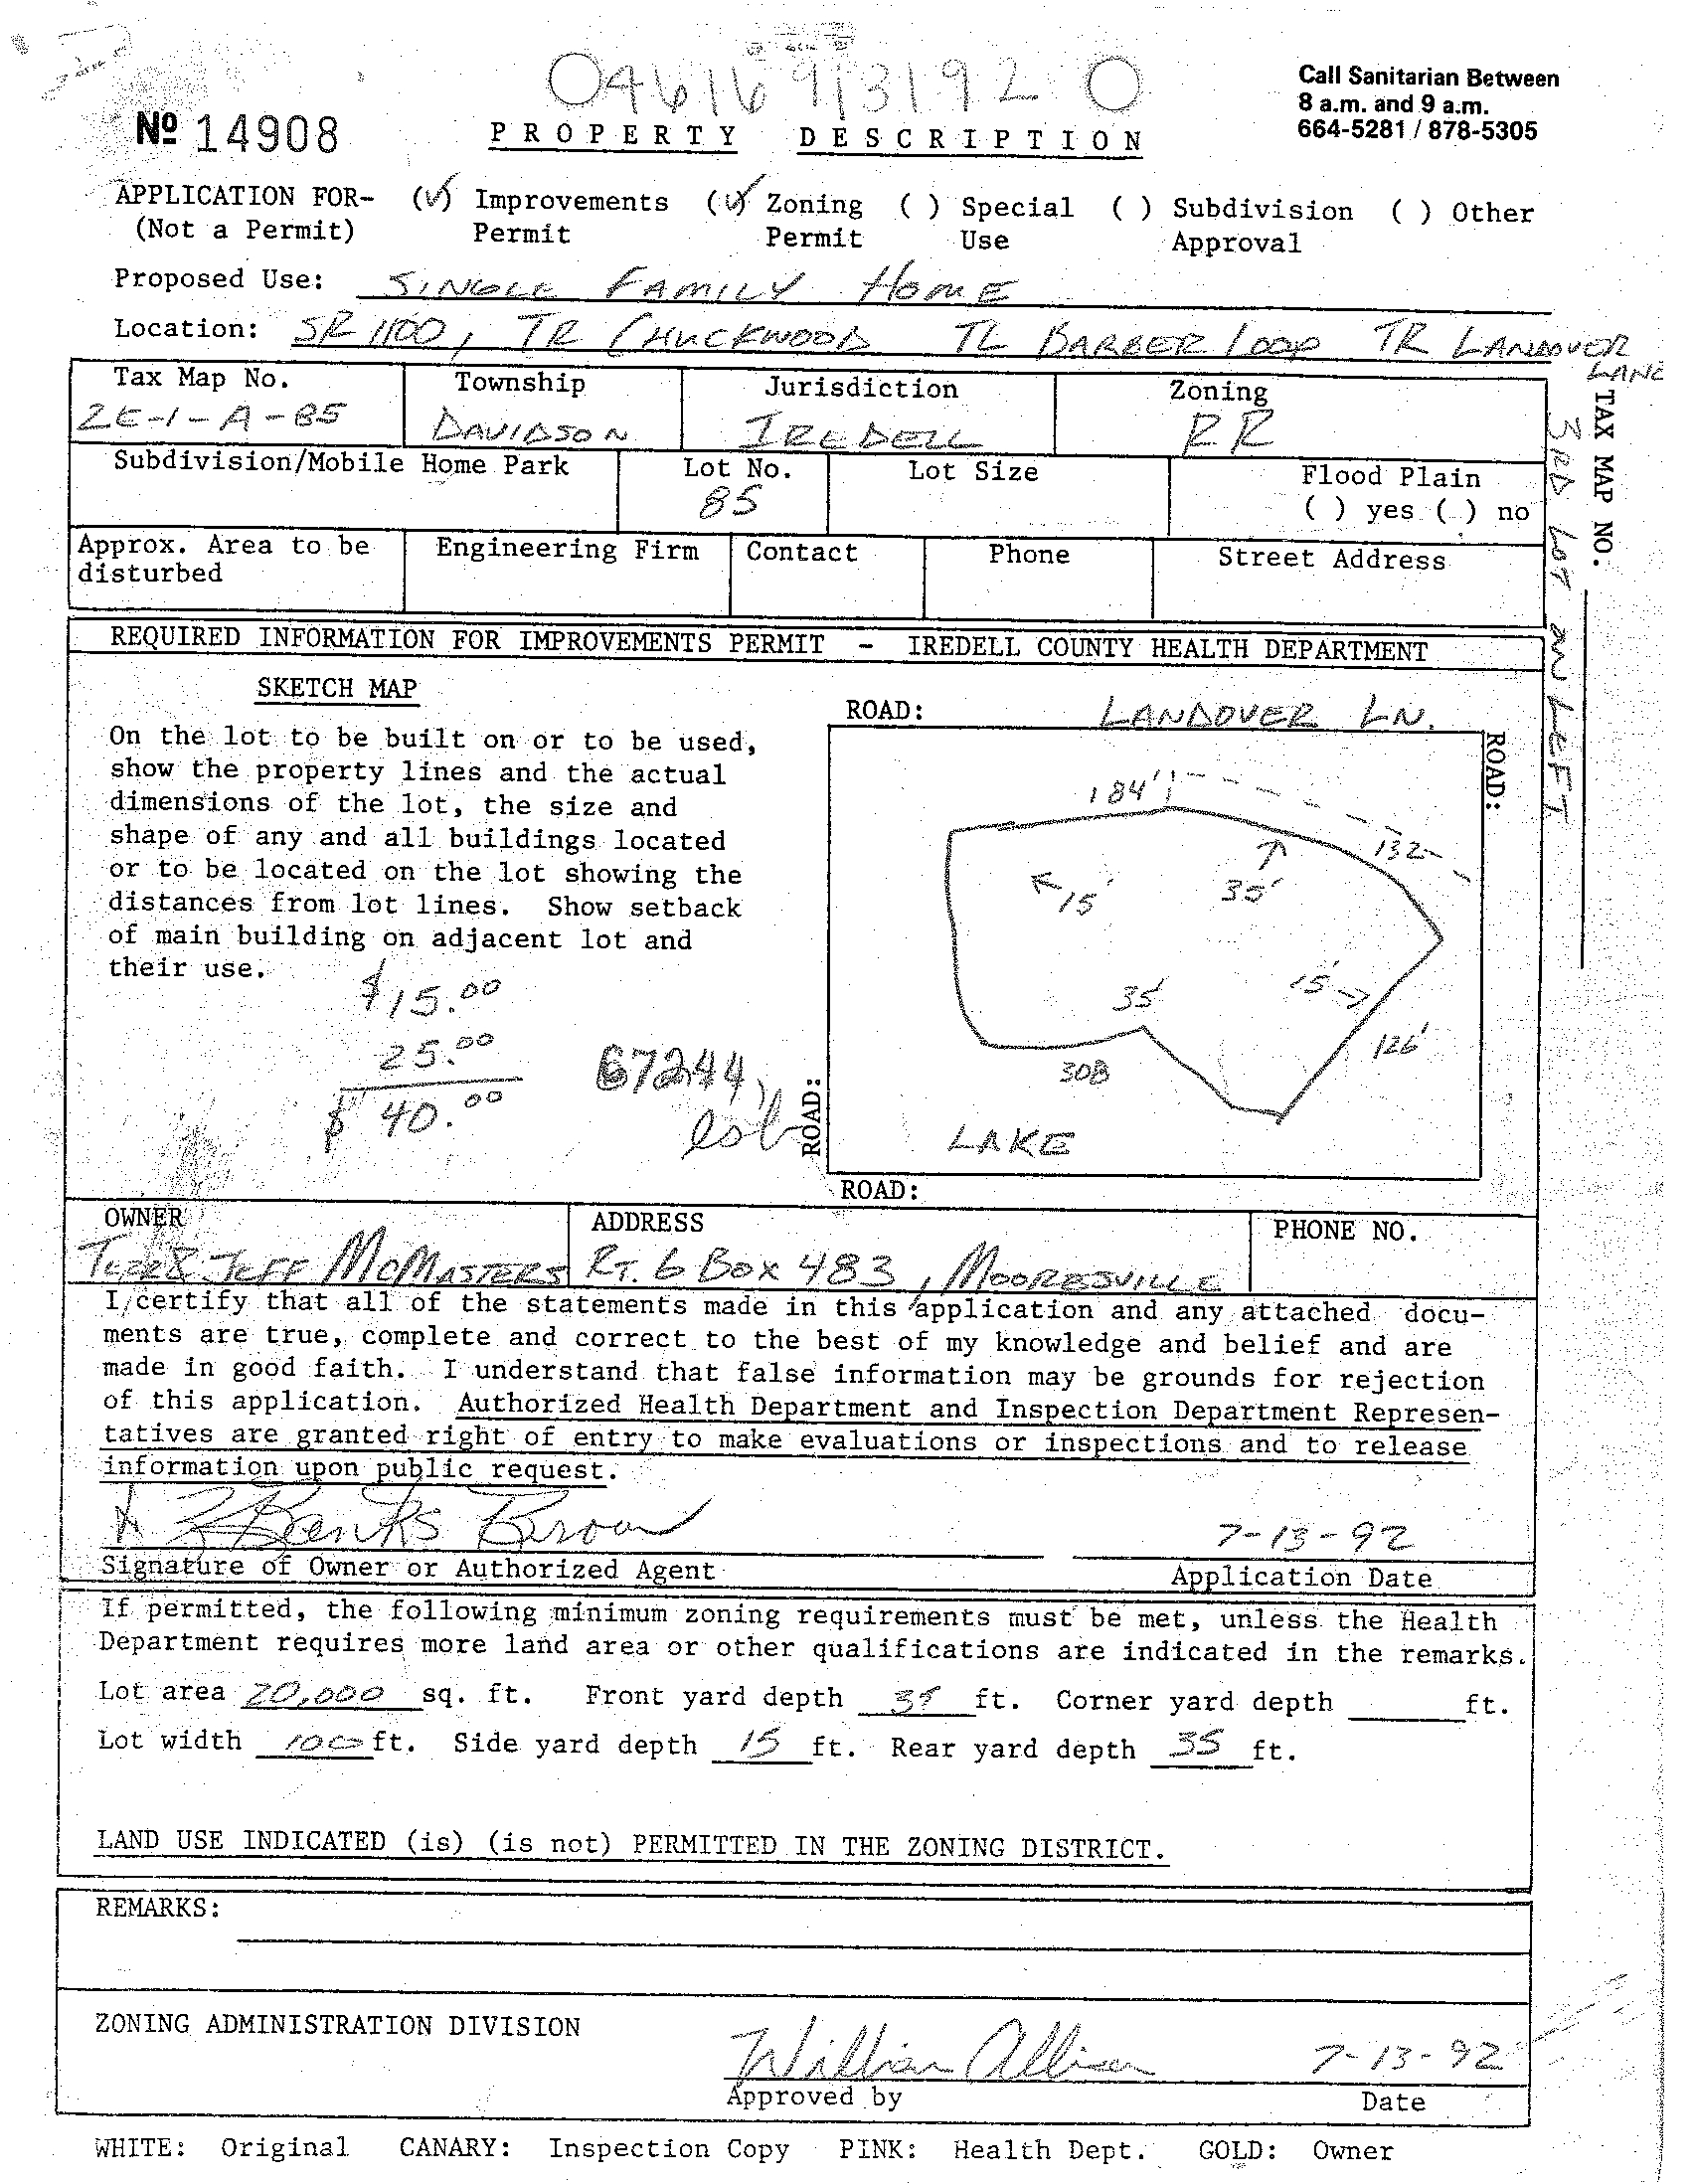 Call Sanitarian Between
8 a.m. and 9 a.m.
664-5281 / 878-5305
№ 14908
PROPERTY DESCRIPTION
APPLICATION FOR- (✓) Improvements (✓) Zoning ( ) Special ( ) Subdivision ( ) Other
(Not a Permit) Permit Permit Use Approval
Proposed Use: SINGLE FAMILY HOME
Location: SR 1100, TR CHUCKWOOD TL BARBER LOOP TR LANDOVER LANE
Tax Map No. Township Jurisdiction Zoning
2E-1-A-85 DAVIDSON IREDELL RR
Subdivision/Mobile Home Park Lot No. Lot Size Flood Plain
85 ( ) yes ( ) no
Approx. Area to be disturbed Engineering Firm Contact Phone Street Address
TAX MAP NO.
3RD LOT ON LEFT
REQUIRED INFORMATION FOR IMPROVEMENTS PERMIT - IREDELL COUNTY HEALTH DEPARTMENT
SKETCH MAP
On the lot to be built on or to be used,
show the property lines and the actual
dimensions of the lot, the size and
shape of any and all buildings located
or to be located on the lot showing the
distances from lot lines. Show setback
of main building on adjacent lot and
their use.
$15.00
25.00
$ 40.00
67244
ROAD: LANDOVER LN.
ROAD:
184'
132
15'
35'
35'
15'
126'
308
LAKE
ROAD:
ROAD:
OWNER ADDRESS PHONE NO.
JEFF McMASTERS RT. 6 BOX 483, MOORESVILLE
I certify that all of the statements made in this application and any attached docu-
ments are true, complete and correct to the best of my knowledge and belief and are
made in good faith. I understand that false information may be grounds for rejection
of this application. Authorized Health Department and Inspection Department Represen-
tatives are granted right of entry to make evaluations or inspections and to release
information upon public request.
X Banks Brown 7-13-92
Signature of Owner or Authorized Agent Application Date
If permitted, the following minimum zoning requirements must be met, unless the Health
Department requires more land area or other qualifications are indicated in the remarks.
Lot area 20,000 sq. ft. Front yard depth 35 ft. Corner yard depth ft.
Lot width 100 ft. Side yard depth 15 ft. Rear yard depth 35 ft.
LAND USE INDICATED (is) (is not) PERMITTED IN THE ZONING DISTRICT.
REMARKS:
ZONING ADMINISTRATION DIVISION
William Allison 7-13-92
Approved by Date
WHITE: Original CANARY: Inspection Copy PINK: Health Dept. GOLD: Owner